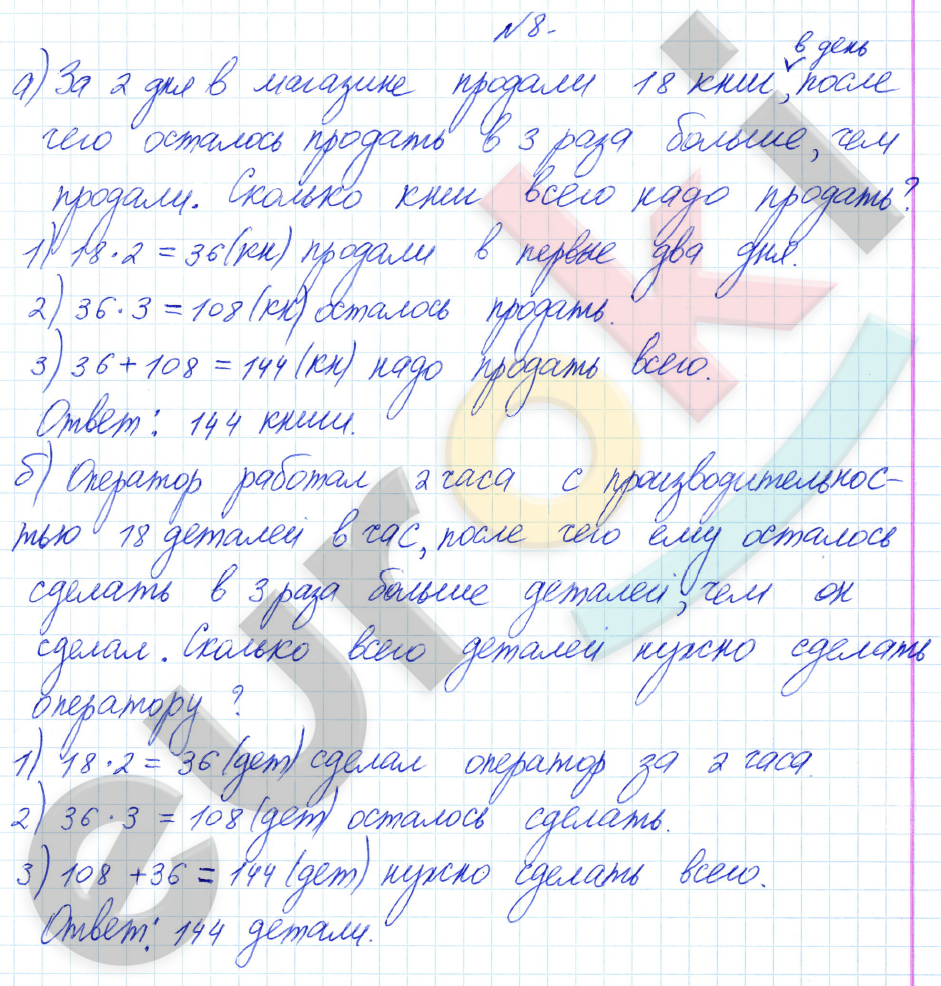 №8.
в день
а) За 2 дня в магазине продали 18 книг, после
чего осталось продать в 3 раза больше, чем
продали. Сколько книг всего надо продать?
1) 18·2=36(кн) продали в первые два дня.
2) 36·3=108(кн) осталось продать.
3) 36+108=144(кн) надо продать всего.
Ответ: 144 книги.
б) Оператор работал 2 часа с производительнос-
тью 18 деталей в час, после чего ему осталось
сделать в 3 раза больше деталей, чем он
сделал. Сколько всего деталей нужно сделать
оператору?
1) 18·2=36(дет) сделал оператор за 2 часа.
2) 36·3=108(дет) осталось сделать.
3) 108+36=144(дет) нужно сделать всего.
Ответ: 144 детали.
euroki